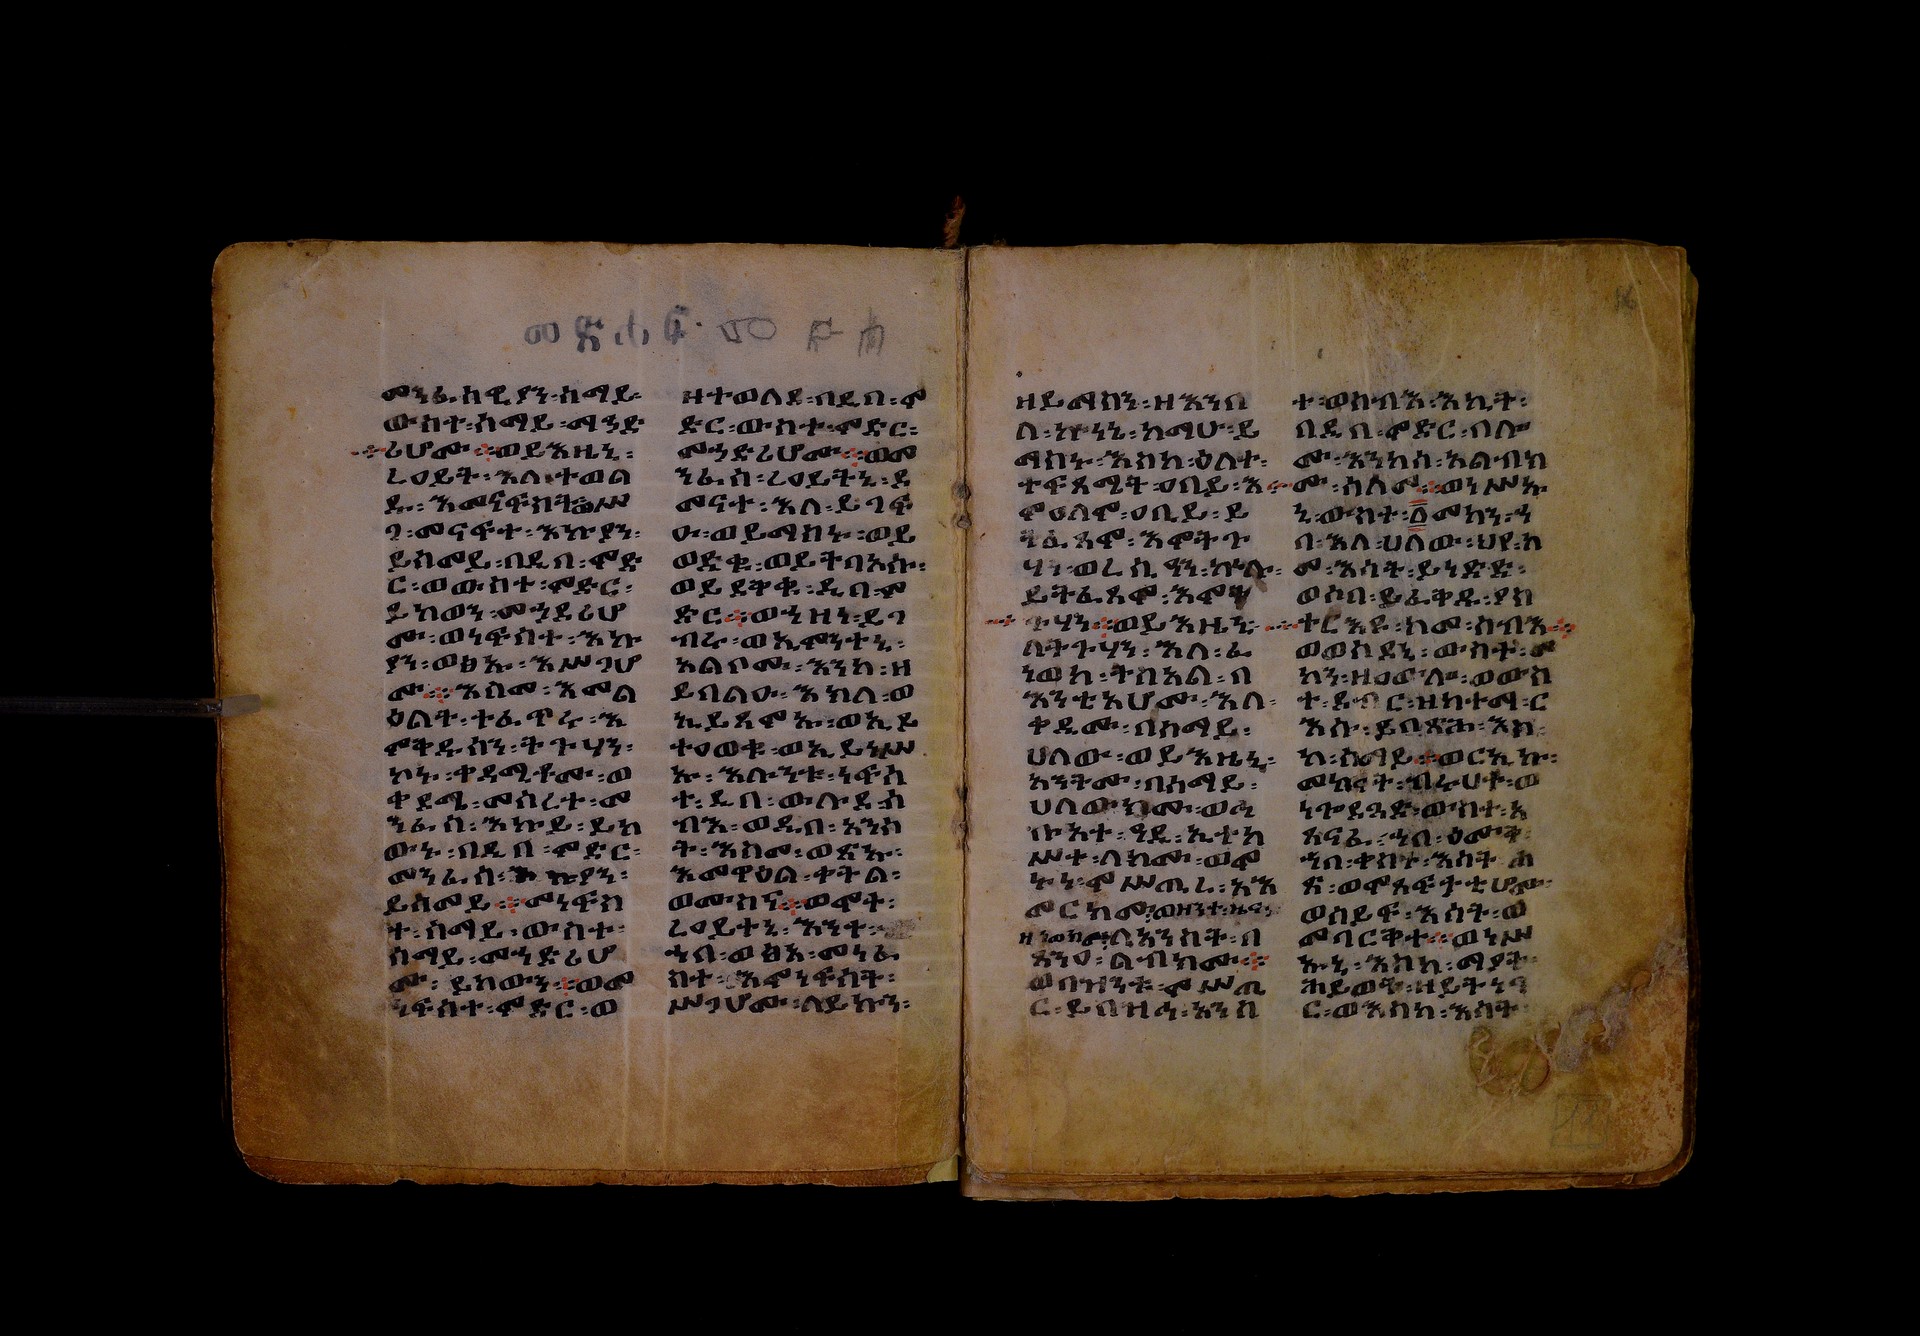 መጽሐፍ
መንፈስዊያን፡ሰማይ፡
ውስተ፡ሰማይ፡ማኅድ
ሪሆሙ፡ወይእዜኒ፡
ረዐይት፡እለ፡ተወል
ዱ፡እመናፍስት፡ወሥ
ጋ፡መናፍተ፡እኩያን፡
ይሰመይ፡በዲበ፡ምድ
ር፡ወውስተ፡ምድር፡
ይከውን፡መኅደሪሆ
ሙ፡ወነፍስተ፡እኩ
ያን፡ወፅኡ፡እሥጋሆ
ሙ፡እስመ፡እመል
ዕልት፡ተፈጥሩ፡እ
ምቅዱሳን፡ትጉሃን፡
ኮነ፡ቀዳሚቶሙ፡ወ
ቀዳሚ፡መሰረት፡መ
ንፈሰ፡እኩይ፡ይከ
ውኑ፡በዲበ፡ምድር፡
መንፈሰ፡እኩያን፡
ይሰመይ፡መነፍስ
ተ፡ሰማይ፡ውስተ፡
ሰማይ፡መኅድሪሆ
ሙ፡ይከውን፡ወመ
ነፍስተ፡ምድር፡ወ
ዘተወለደ፡በዲበ፡ም
ድር፡ውስተ፡ምድር፡
መኅድሪሆሙ፡ወመ
ንፈሰ፡ረዐይትኒ፡ደ
መናተ፡እለ፡ይገፍ
ዑ፡ወይማስኑ፡ወይ
ወድቁ፡ወይትባአሱ፡
ወይደቅቁ፡ዲበ፡ም
ድር፡ወኀዘነ፡ይገ
ብሩ፡ወኢምንተኒ፡
እልቦሙ፡እንከ፡ዘ
ይበልዑ፡እክለ፡ወ
ኢይጸምኡ፡ወኢይ
ተዐወቁ፡ወኢይነሥ
ኡ፡እሉንቱ፡ነፍስ
ት፡ዲበ፡ውሉደ፡ሰ
ብእ፡ወዲበ፡አንስ
ት፡እስመ፡ወፅኡ፡
እመዋዕል፡ቀትል፡
ወሙስና፡ወሞት፡
ረዐይተኒ፡እንተ፡
ኀበ፡ወፅአ፡መነፈ
ስተ፡እምነፍስት፡
ሥጋሆሙ፡ለይኩን፡
ዘይማስን፡ዘእንበ
ለ፡ኵነኔ፡ከማሁ፡ይ
ማስኑ፡እስከ፡ዕለተ፡
ተፍጻሜት፡ዐቢይ፡እ
ምዐለም፡ዐቢይ፡ይ
ትፌጸም፡እምትጉ
ሃን፡ወረሲዓን፡ኵሉ፡
ይትፌጸም፡እምት
ጉሃን፡ወይእዜኒ፡
ለትጉሃን፡እለ፡ፈ
ነወከ፡ትስአል፡በ
እንቲአሆሙ፡እለ፡
ቀዲሙ፡በሰማይ፡
ሀለው፡ወይእዜኒ፡
አንትሙ፡በሰማይ፡
ሀለውክሙ፡ወኅ
ቡአተ፡ዓዲ፡ኢተከ
ሥተ፡ለክሙ፡ወም
ኑነ፡ምሥጢረ፡አእ
መርክሙ፡ወዘንተ፡ዜና
ዘነወክሙ፡ለአንስት፡በ
ጽንዐ፡ልብክሙ፡
ወበዝንቱ፡ምሥጢ
ር፡ይበዝኃ፡አንስ
ት፡ወሰብእ፡እኪት፡
በዲበ፡ምድር፡በሎ
ሙ፡እንከሰ፡አልብክ
ሙ፡ሰላም፡ወነሥኡ
ኒ፡ውስተ፡፩መካን፡ኀ
በ፡እለ፡ሀለው፡ህየ፡ከ
መ፡እሳት፡ይነድድ፡
ወሶበ፡ይፈቅዱ፡ያስ
ተርእዩ፡ከመ፡ሰብእ፡
ወወሰደኒ፡ውስተ፡መ
ካን፡ዘዐውሎ፡ወውስ
ተ፡ደብር፡ዘከተማ፡ር
እሱ፡ይበጽሕ፡እስ
ከ፡ሰማይ፡ወርኢኩ፡
መካናት፡ብሩሀት፡ወ
ነጐድጓድ፡ውስተ፡አ
ጽናፈ፡ኀበ፡ዕመቁ፡
ኀበ፡ቀስተ፡እሳት፡ሐ
ጽ፡ወምጽፍትቲሆሙ፡
ወሰይፍ፡እሳት፡ወ
መባርቅተ፡ወነሥ
ኡኒ፡እስከ፡ማያት፡
ሕይወት፡ዘይትነገ
ር፡ወእስከ፡እሳት፡